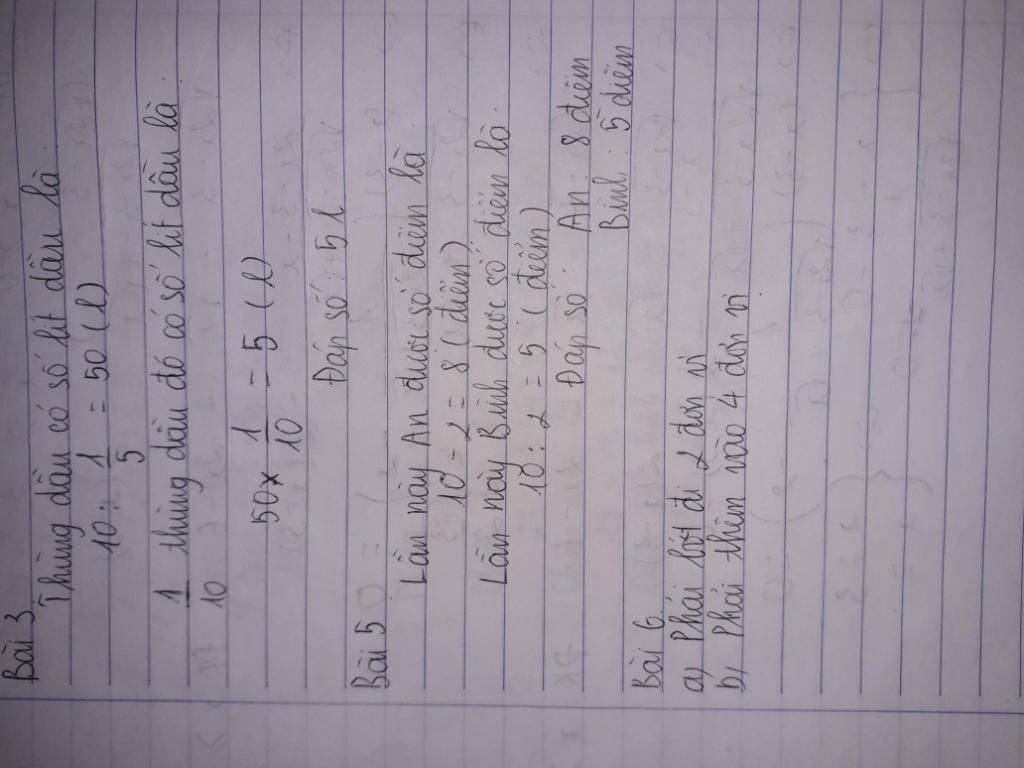 Bài 3
Thùng dầu có số lít dầu là
10 : 1/5 = 50 (l)
1/10 thùng dầu đó có số lít dầu là
50 x 1/10 = 5 (l)
Đáp số : 5 l
Bài 5
Lần này An được số điểm là
10 - 2 = 8 (điểm)
Lần này Bình được số điểm là
10 : 2 = 5 (điểm)
Đáp số : An : 8 điểm
Bình : 5 điểm
Bài 6
a) Phải bớt đi 2 đơn vị
b) Phải thêm vào 4 đơn vị